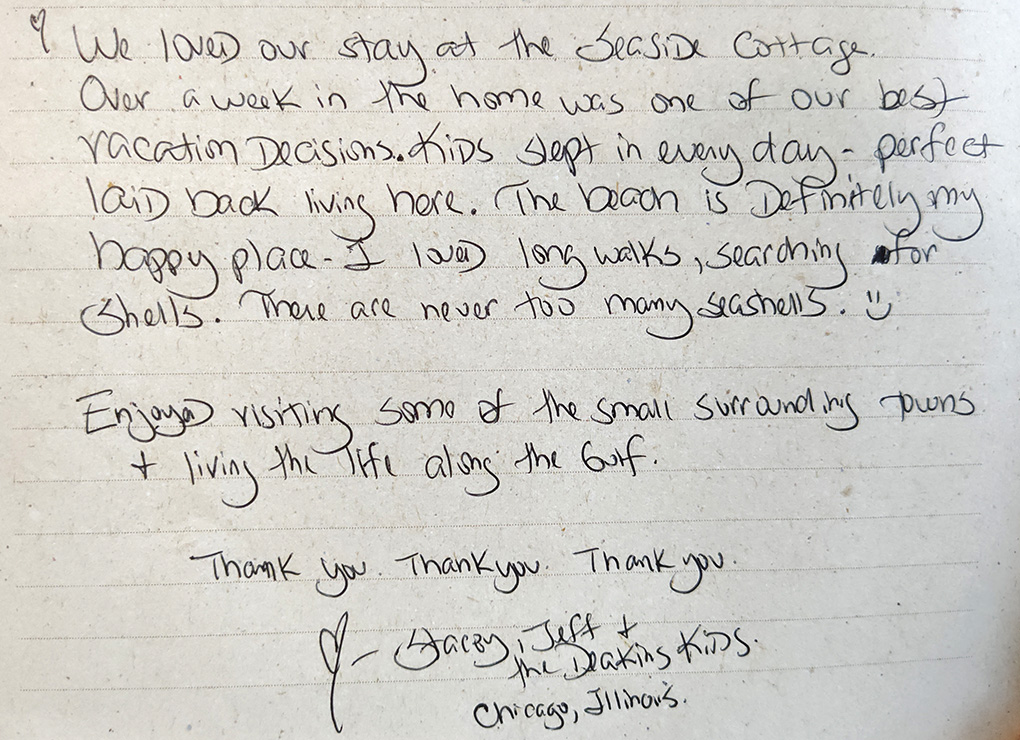 We loved our stay at the Seaside Cottage.
Over a week in the home was one of our best
vacation Decisions. Kids slept in every day - perfect
laid back living here. The beach is Definitely my
happy place - I loved long walks, searching for
Shells. There are never too many seashells. :)
Enjoyed visiting some of the small surrounding towns
+ living the life along the Gulf.
Thank you. Thank you. Thank you.
- Stacey, Jeff +
the Deakins Kids.
Chicago, Illinois.